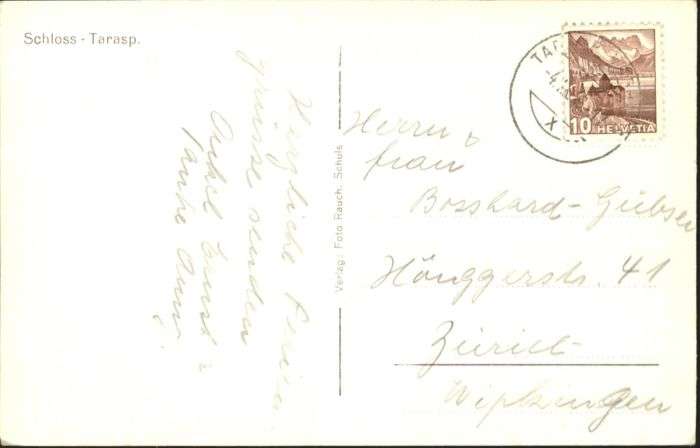 Schloss - Tarasp.
Herzliche Ferien
grüsse senden
Onkel Ernst &
Tante Anny
Verlag: Foto Rauch, Schuls
10 HELVETIA
Herrn &
Frau
Bosshard-Gubser
Hönggerstr. 41
Zürich-
Wipkingen